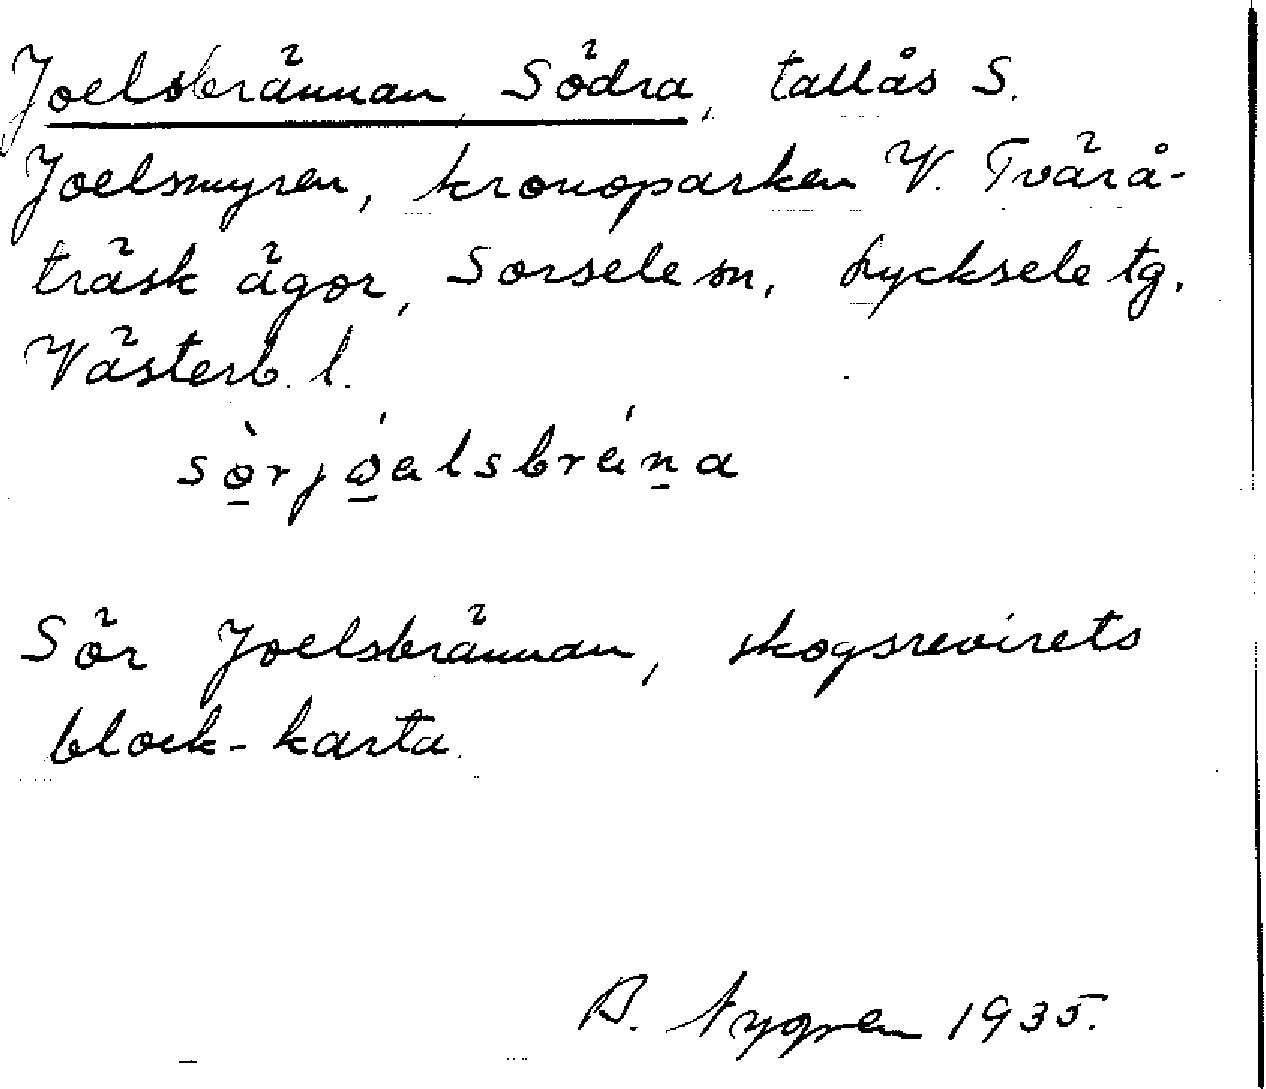 Joelsbrännan, Södra, tallås S.
Joelsmyren, kronoparken V. Tvärå-
träsk ägor, Sorsele sn, Lycksele tg.
Västerb. l.
Sör Joelsbrännan, skogsrevirets
block-karta.
A. Nygren 1935.